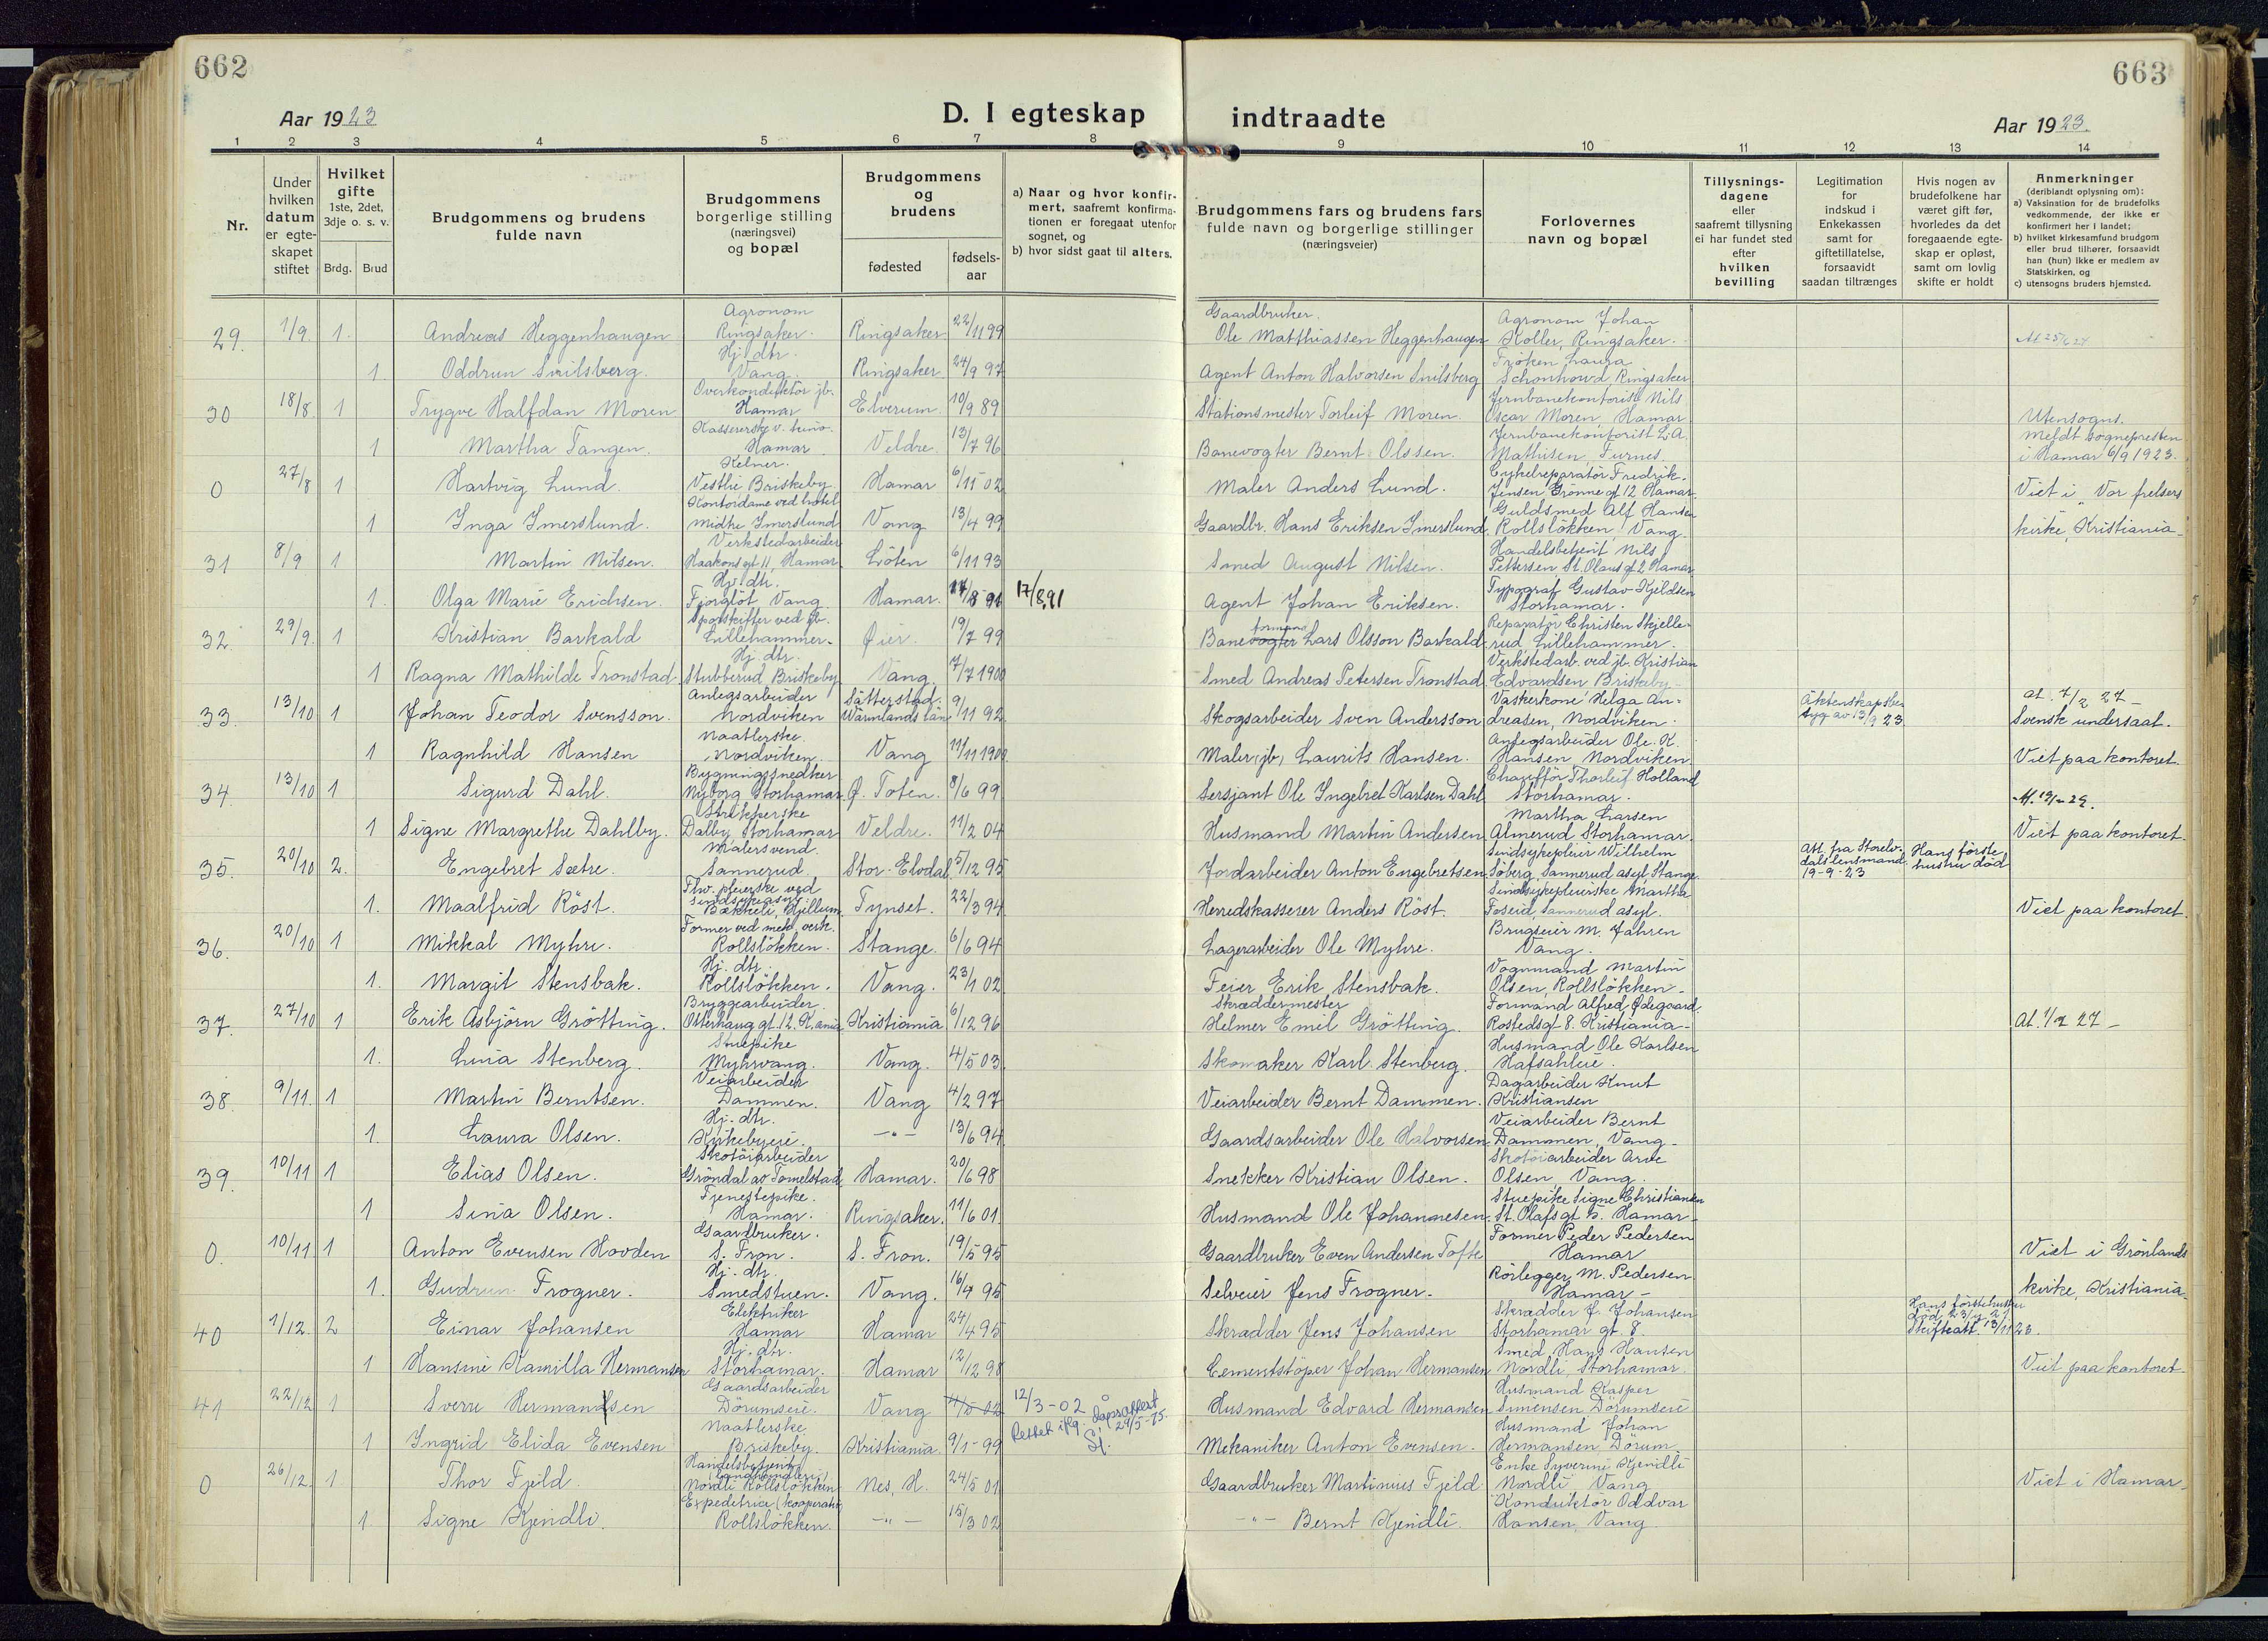 662
663
Aar 1923
D. I egteskap indtraadte
Aar 1923.
1 2 3 4 5 6 7 8 9 10 11 12 13 14
Nr.
Under hvilken datum er egteskapet stiftet
Hvilket gifte 1ste, 2det, 3dje o. s. v.
Brdg. Brud
Brudgommens og brudens fulde navn
Brudgommens borgerlige stilling (næringsvei) og bopæl
Brudgommens og brudens
fødested fødsels-aar
a) Naar og hvor konfirmert, saafremt konfirmationen er foregaat utenfor sognet, og
b) hvor sidst gaat til alters.
Brudgommens fars og brudens fars fulde navn og borgerlige stillinger (næringsveier)
Forlovernes navn og bopæl
Tillysningsdagene eller saafremt tillysning ei har fundet sted efter hvilken bevilling
Legitimation for indskud i Enkekassen samt for giftetillatelse, forsaavidt saadan tiltrænges
Hvis nogen av brudefolkene har været gift før, hvorledes da det foregaaende egteskap er opløst, samt om lovlig skifte er holdt
Anmerkninger (deriblandt oplysning om):
a) Vaksination for de brudefolks vedkommende, der ikke er konfirmert her i landet;
b) hvilket kirkesamfund brudgom eller brud tilhører, forsaavidt han (hun) ikke er medlem av Statskirken, og
c) utensogns bruders hjemsted.
29. 1/9. 1. Andreas Heggenhaugen Agronom Ringsaker. Ringsaker 22/11 99 Gaardbruker. Ole Matthiassen Heggenhaugen Agronom Johan Koller, Ringsaker.
1. Oddrun Snilsberg. Hj. dtr. Vang. Ringsaker 24/9 97 Agent Anton Halvorsen Snilsberg Frøken Laura Schonhowd Ringsaker
30 18/8. 1 Trygve Halfdan Moren Overkonduktør jb. Hamar Elverum. 10/9 89 Stationsmester Torleif Moren. Jernbanekontorist Nils Oscar Moren, Hamar Utensogns.
1 Martha Tangen. Kassererske v. kino. Hamar Veldre. 13/7 96 Banevogter Bernt Olssen. Jernbanekontorist L.A. Mathisen, Furnes. meldt sognepresten i Hamar 6/9 1923.
0 27/8 1 Hartvig Lund. Kelner. Vestli Briskeby Hamar 6/11 02 Maler Anders Lund. Cykelreparatør Fredrik Jensen Grønne gt 12 Hamar Viet i "Vor frelsers
1 Inga Imerslund. Kontordame ved hotel midtre Imerslund Vang 13/4 99 Gaardbr. Hans Eriksen Imerslund Guldsmed Alf Hansen Rolsløkken, Vang kirke, Kristiania
31 8/9 1 Martin Nilsen. Verkstedarbeider Haakons gt 11, Hamar Løten 6/11 93 Smed August Nilsen. Handelsbetjent Nils Pettersen St. Olavs gt 2 Hamar
1. Olga Marie Erichsen. Hj. dtr. Fjorglöt Vang Hamar. 17/8 91 17/8.91 Agent Johan Eriksen. Typograf Gustav Kjeldsen Storhamar.
32. 29/9. 1 Kristian Barkald Sporskifter ved jb. Lillehammer. Öier. 19/7 99 Baneformand Lars Olsson Barkald Reparatør Christen Skjellerud Lillehammer.
1 Ragna Mathilde Tronstad Hj. dtr. Stubberud Briskeby Vang 7/7 1900 Smed Andreas Petersen Tronstad Verkstedarb. ved jb. Kristian Edvardsen Briskeby
33. 13/10 1 Johan Teodor Svensson. Anlegsarbeider Nordviken Sätterstad Wärmlands län 9/11 92 Skogsarbeider Sven Andersson Vaskerkone Helga Andreasen, Nordviken. Äktenskapsbetyg av 13/9 23 at. 7/2 27 Svensk undersaat.
1 Ragnhild Hansen Naatlerske. Nordviken. Vang 11/11 1900 Maler (jb) Laurits Hansen. Anlegsarbeider Ole K. Hansen Nordviken Viet paa kontoret.
34. 13/10 1 Sigurd Dahl. Bygningssnedker Nyborg Storhamar Ø. Toten. 8/6 99 Sersjant Ole Ingebret Karlsen Dahl Chaufför Thorleif Holland Storhamar.
1 Signe Margrethe Dahlby. Strikkerske Dalby, Storhamar Veldre. 11/2 04 Husmand Martin Andersen Martha Larsen Almerud Storhamar. Viet paa kontoret.
35. 20/10 2. Engebret Sætre. Malersvend. Sannerud. Stor-Elvdal 5/12 95 Jordarbeider Anton Engebretsen Sindsykepleier Wilhelm Søberg, Sannerud asyl, Stange Att. fra Storelvdals lensmand. 19-9-23 Hans første hustru död
1. Maalfrid Röst. Fhv. pleierske ved sindsykeasyl. Bækkeli, Hjellum Tynset. 22/3 94 Herredskasserer Anders Röst. Sindsykepleierske Martha Foseid, Sannerud asyl. Viet paa kontoret.
36. 20/10 1 Mikkal Myhre. Former ved mek. verk. Rollsløkken. Stange. 6/6 94 Lagerarbeider Ole Myhre. Brugseier M. Jahren Vang.
1. Margit Stensbak. Hj. dtr. Rollsløkken. Vang. 23/1 02 Feier Erik Stensbak. Vognmand Martin Olsen, Rollsløkken
37. 27/10 1 Erik Asbjörn Gröttnig. Bryggearbeider Otterhaug gt. 12. K.ania Kristiania 6/12 96 Skræddermester Helmer Emil Gröttnig. Formand Alfred Ødegaard Rostedsgt 8. Kristiania At. 1/2 27
1. Lina Stenberg. Stuepike Myhrvang. Vang. 4/5 03 Skomaker Karl Stenberg. Husmand Ole Karlsen Hafsahleie.
38. 9/11. 1 Martin Berntsen. Veiarbeider Dammen. Vang 4/2 97 Veiarbeider Bernt Dammen. Dagarbeider Knut Kristiansen
1. Laura Olsen. Hj. dtr. Kirkebyeie. -"- 13/6 94 Gaardsarbeider Ole Halvorsen Veiarbeider Bernt Dammen, Vang.
39. 10/11 1 Elias Olsen. Skotöiarbeider Gröndal av Tomelstad Hamar. 20/6 98 Snekker Kristian Olsen. Skotöiarbeider Arve Olsen, Vang.
1 Sina Olsen. Tjenestepike. Hamar. Ringsaker. 11/6 01 Husmand Ole Johannesen. Stuepike Signe Christiansen St. Olafs gt 5. Hamar
0. 10/11 1 Anton Evensen Hovden Gaardbruker. S. Fron. S. Fron. 19/5 95 Gaardbruker Even Andersen Tofte Former Peder Pedersen Hamar Viet i Grønlands
1. Gudrun Frogner. Hj. dtr. Smedstuen. Vang. 16/4 95 Selveier Jens Frogner. Rörlegger M. Pedersen Hamar kirke, Kristiania
40 1/12. 2 Einar Johansen Elektriker Hamar Hamar 24/4 95 Skrædder Jens Johansen Skrædder J. Johansen Storhamar gt. 8. Hans förste hustru död Skifteatt. 13/11 23.
1 Hansine Kamilla Hermansen Hj. dtr. Storhamar. Hamar 12/12 98 Cementstöper Johan Hermansen Smed Hans Hansen Nordli, Storhamar. Viet paa kontoret
41 22/12 1 Sverre Hermansen Gaardsarbeider Dörumseie. Vang 4/5 02 12/3-02 Rettet ifg. dåpsattest 29/5-75. Husmand Edvard Hermansen Husmand Kasper Simensen Dörumseie
1 Ingrid Elida Evensen Naatlerske Briskeby. Kristiania. 9/1-99 Mekaniker Anton Evensen. Husmand Johan Hermansen Dörum
0 26/12. 1 Thor Fjeld. Handelsbetjent (landhandleri) Nordli Rollsløkken Nes, H. 24/5 01 Gaardbruker Martinius Fjeld Enke Syverine Kjendli Nordli Vang Viet i Hamar
1 Signe Kjendli. Expeditrice (kooperativ) Rollsløkken. -"- 15/3 02 -"- Bernt Kjendli. Konduktör Oddvar Hansen, Vang